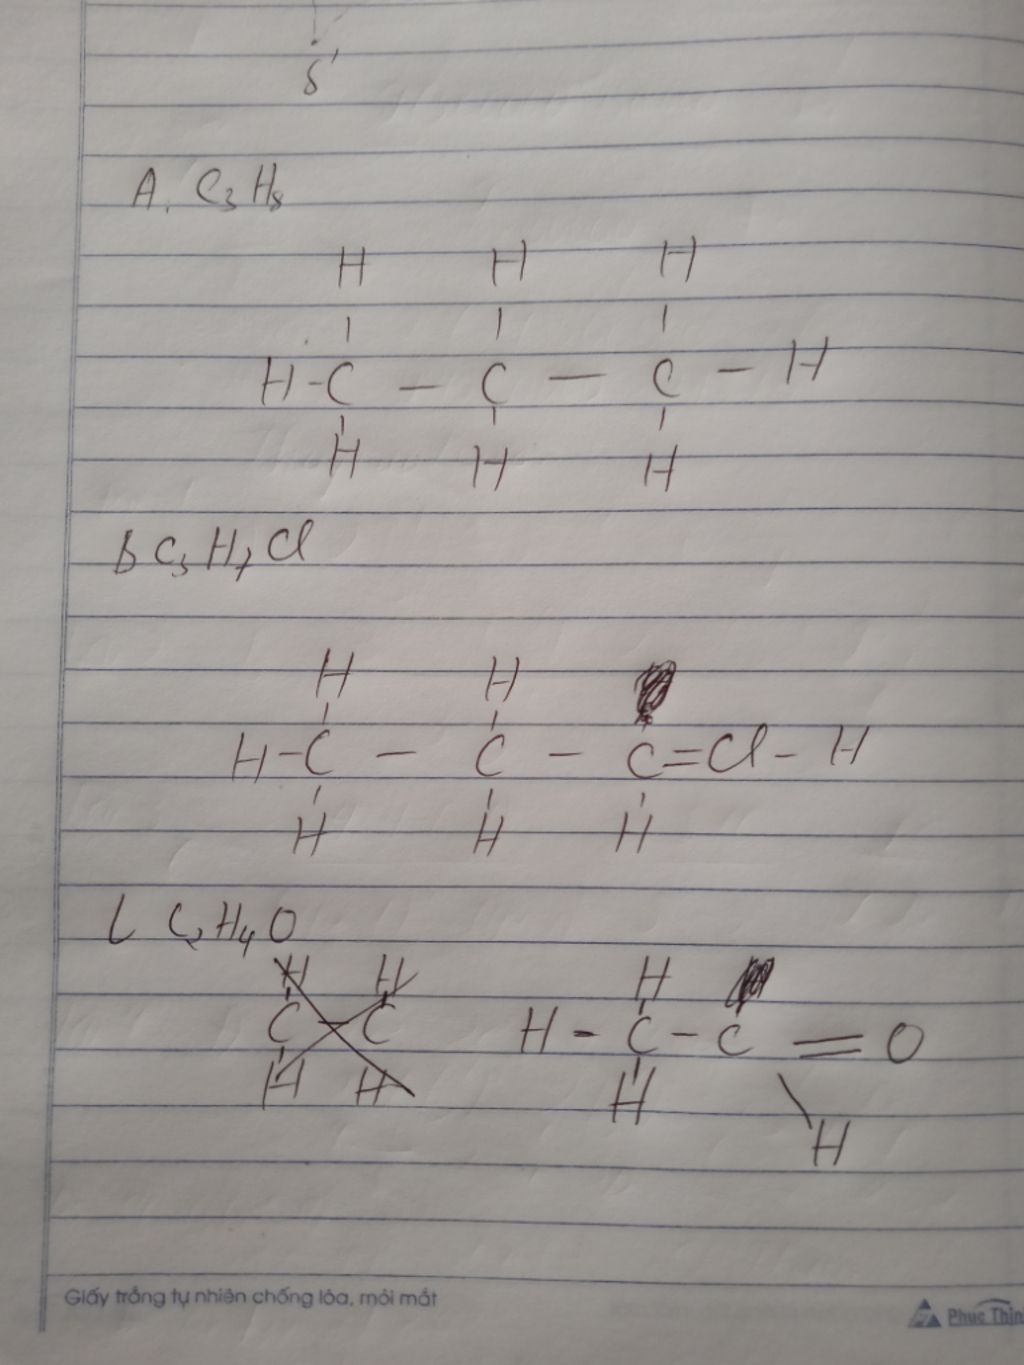 δ'
A. C₃H₈
H H H
H-C — C — C — H
H H H
B C₃H₇Cl
H H
H-C — C — C=Cl-H
H H H
C₂H₄O
H H H
C-C H-C-C=O
H H H H
Giấy trắng tự nhiên chống lóa, mỏi mắt
Phuc Thin